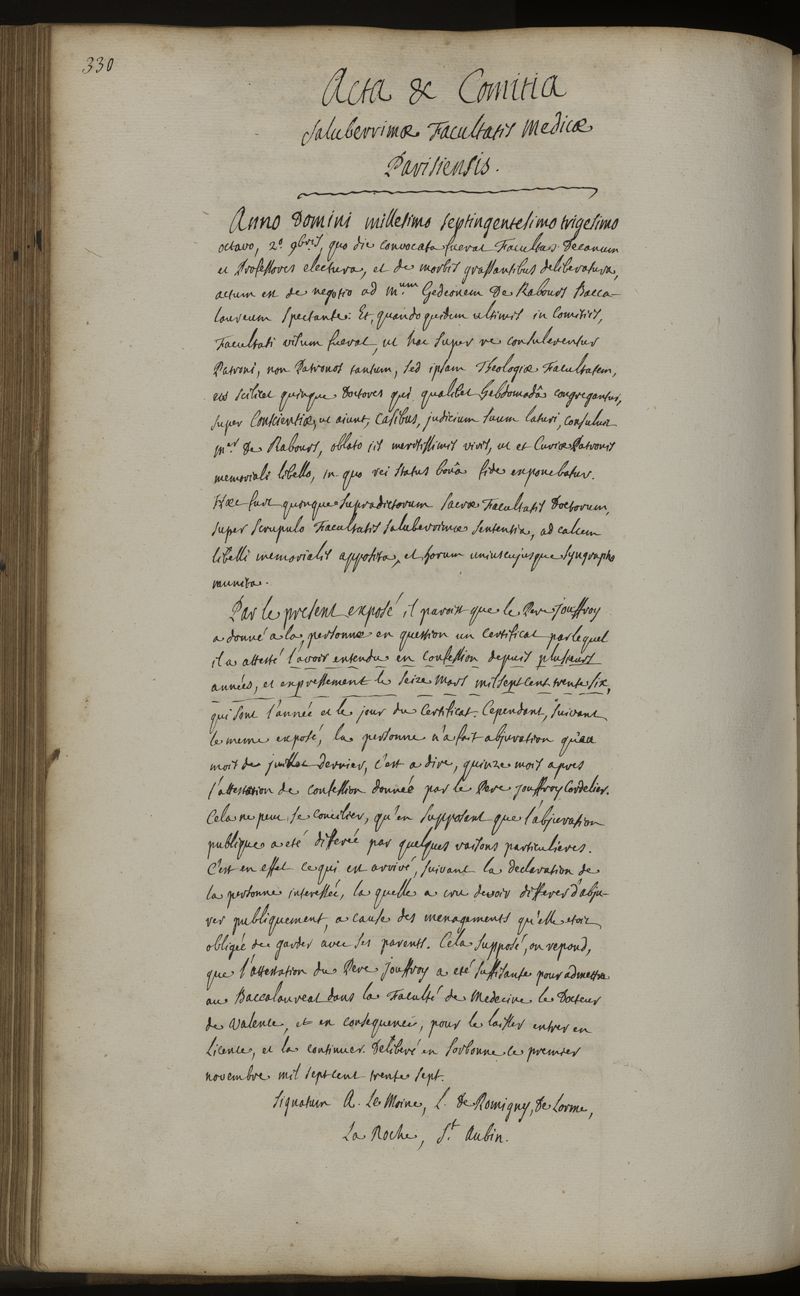 330
Acta & Comitia
Saluberrimæ Facultatis Medicæ
Parisiensis.
Anno Domini millesimo septingentesimo trigesimo
octavo, 2ª 9bris, quo die convocata fuerat Facultas Decanum
et Professores electura, et de morbis grassantibus deliberatura,
actum est de negotio ad Mum Gedeonem De Rabours Bacca-
laureum spectante: Et, quandoquidem ultimis in Comitiis,
Facultati visum fuerat, ut hac super re consulerentur
Patroni, non Patronos tantum, sed ipsam Theologiæ Facultatem,
eos scilicet quinque Doctores qui qualibet hebdomadâ congregantur,
super Conscientiæ, ut aiunt, Casibus, judicium suum laturi, consuluit
Mer De Rabours, oblato iis meritissimis viris, ut et Curiæ Patronis
memoriali libello, in quo rei status bonâ fide exponebatur.
Hæc fuit quinque supradictorum sacræ Facultatis Doctorum,
super scrupulo Facultatis saluberrimæ sententia, ad calcem
libelli memorialis apposita, et horum uniuscujusque syngrapha
munita.
Par le present exposé il paroist que le Pere jouffroy
a donné a la personne en question un certificat par lequel
il a attesté l'avoir entendu en confession depuis plusieurs
années, et expressement le seize mars mil sept cent trente six,
qui sont l'année et le jour du certificat. Cependant, suivant
le meme exposé, la personne n'a fait abjuration qu'au
mois de juillet dernier, c'est a dire, quinze mois apres
l'attestation de confession donnée par le Pere jouffroy Cordelier.
Cela ne peut se concilier, qu'en supposant que l'abjuration
publique a eté differée par quelques raisons particulieres.
C'est en effet ce qui est arrivé, suivant la declaration de
la personne interessée, la quelle a cru devoir differer d'abju-
rer publiquement, a cause des menagements qu'elle etoit
obligée de garder avec ses parents. Cela supposé, on repond,
que l'attestation du Pere jouffroy a eté suffisante pour admettre
au Baccalaureat dans la Faculté de Medecine le Docteur
de Valence, et en consequence, pour le laisser entrer en
Licence, et la continuer. Deliberé en Sorbonne ce premier
novembre mil sept cent trente sept.
Signatum A. Le Moine, L. De Romigny, De Lorme,
La Roche, St. Aubin.